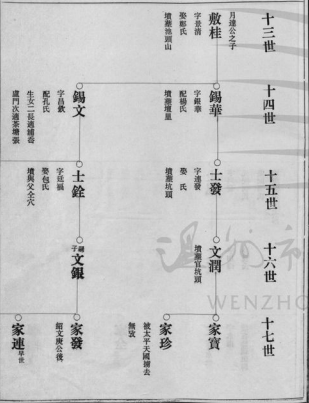 十三世
月達公之子
敷桂
字景清
娶鄭氏
墳塟池頭山
十四世
錫華
字銀華
配楊氏
墳塟壠里
錫文
字昌欽
配孔氏
生女二長適浦岙
盧門次適茶塘張
十五世
士發
字連發
娶 氏
墳塟坑頭
士銓
字廷福
娶包氏
墳與父仝穴
十六世
文潤
墳塟官坑頭
繼子
文銀
十七世
家寶
家珍
被太平天國擄去
無攷
家發
紹文庚公後
家連
早世
WENZHO